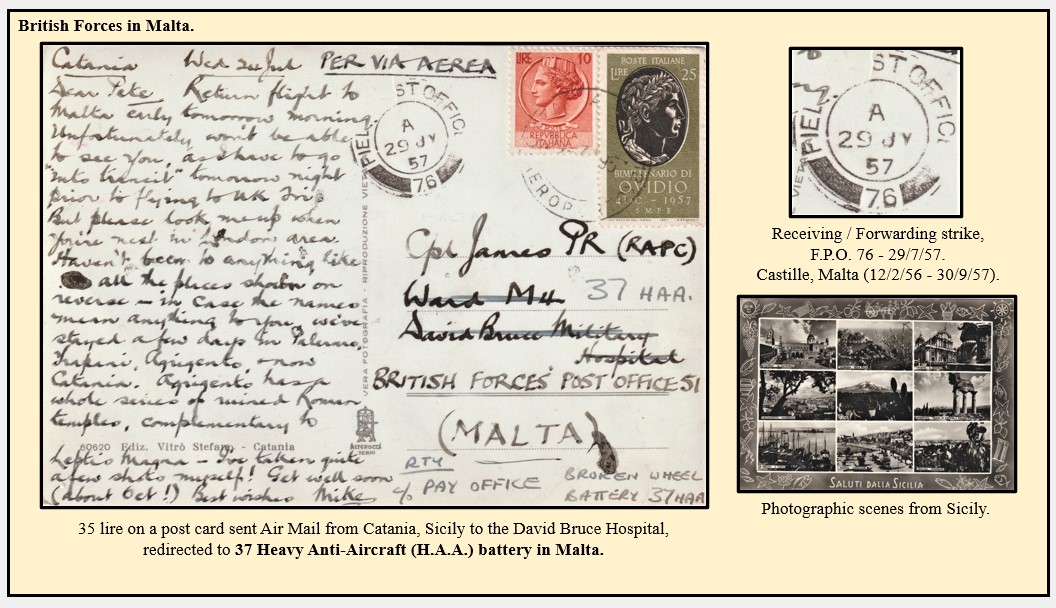 British Forces in Malta.
Catania Wed 24 Jul PER VIA AEREA
Dear Pete, Return flight to
Malta early tomorrow morning.
Unfortunately won't be able
to see you, as I have to go
"into transit" tomorrow night
prior to flying to UK Fri.
But please look me up when
you're next in London area.
Haven't been to anything like
all the places shown on
reverse - in case the names
mean anything to you, we've
stayed a few days in Palermo,
Trapani, Agrigento, & now
Catania. Agrigento has a
whole series of ruined Roman
temples, complementary to
Leptis Magna - I've taken quite
a few shots myself! Get well soon
(about Oct!) Best wishes Mike
60620 Ediz. Vitrò Stefano - Catania
VERA FOTOGRAFIA - RIPRODUZIONE VIETATA
ALTEROCCI
TERNI
LIRE 10
POSTE
REPVBBLICA
ITALIANA
POSTE ITALIANE
LIRE 25
BIMILLENARIO DI
OVIDIO
43 A.C - 1957
AEROP
FIELD POST OFFICE
A
29 JY
57
76
Cpl James PR (RAPC)
Ward M4 37 HAA.
David Bruce Military
Hospital
BRITISH FORCES' POST OFFICE 51
(MALTA)
RTY
c/o PAY OFFICE
BROKEN WHEEL
BATTERY 37 HAA
35 lire on a post card sent Air Mail from Catania, Sicily to the David Bruce Hospital,
redirected to 37 Heavy Anti-Aircraft (H.A.A.) battery in Malta.
FIEL ST OFFIC
A
29 JY
57
76
VIETA
Receiving / Forwarding strike,
F.P.O. 76 - 29/7/57.
Castille, Malta (12/2/56 - 30/9/57).
SALUTI DALLA SICILIA
Photographic scenes from Sicily.